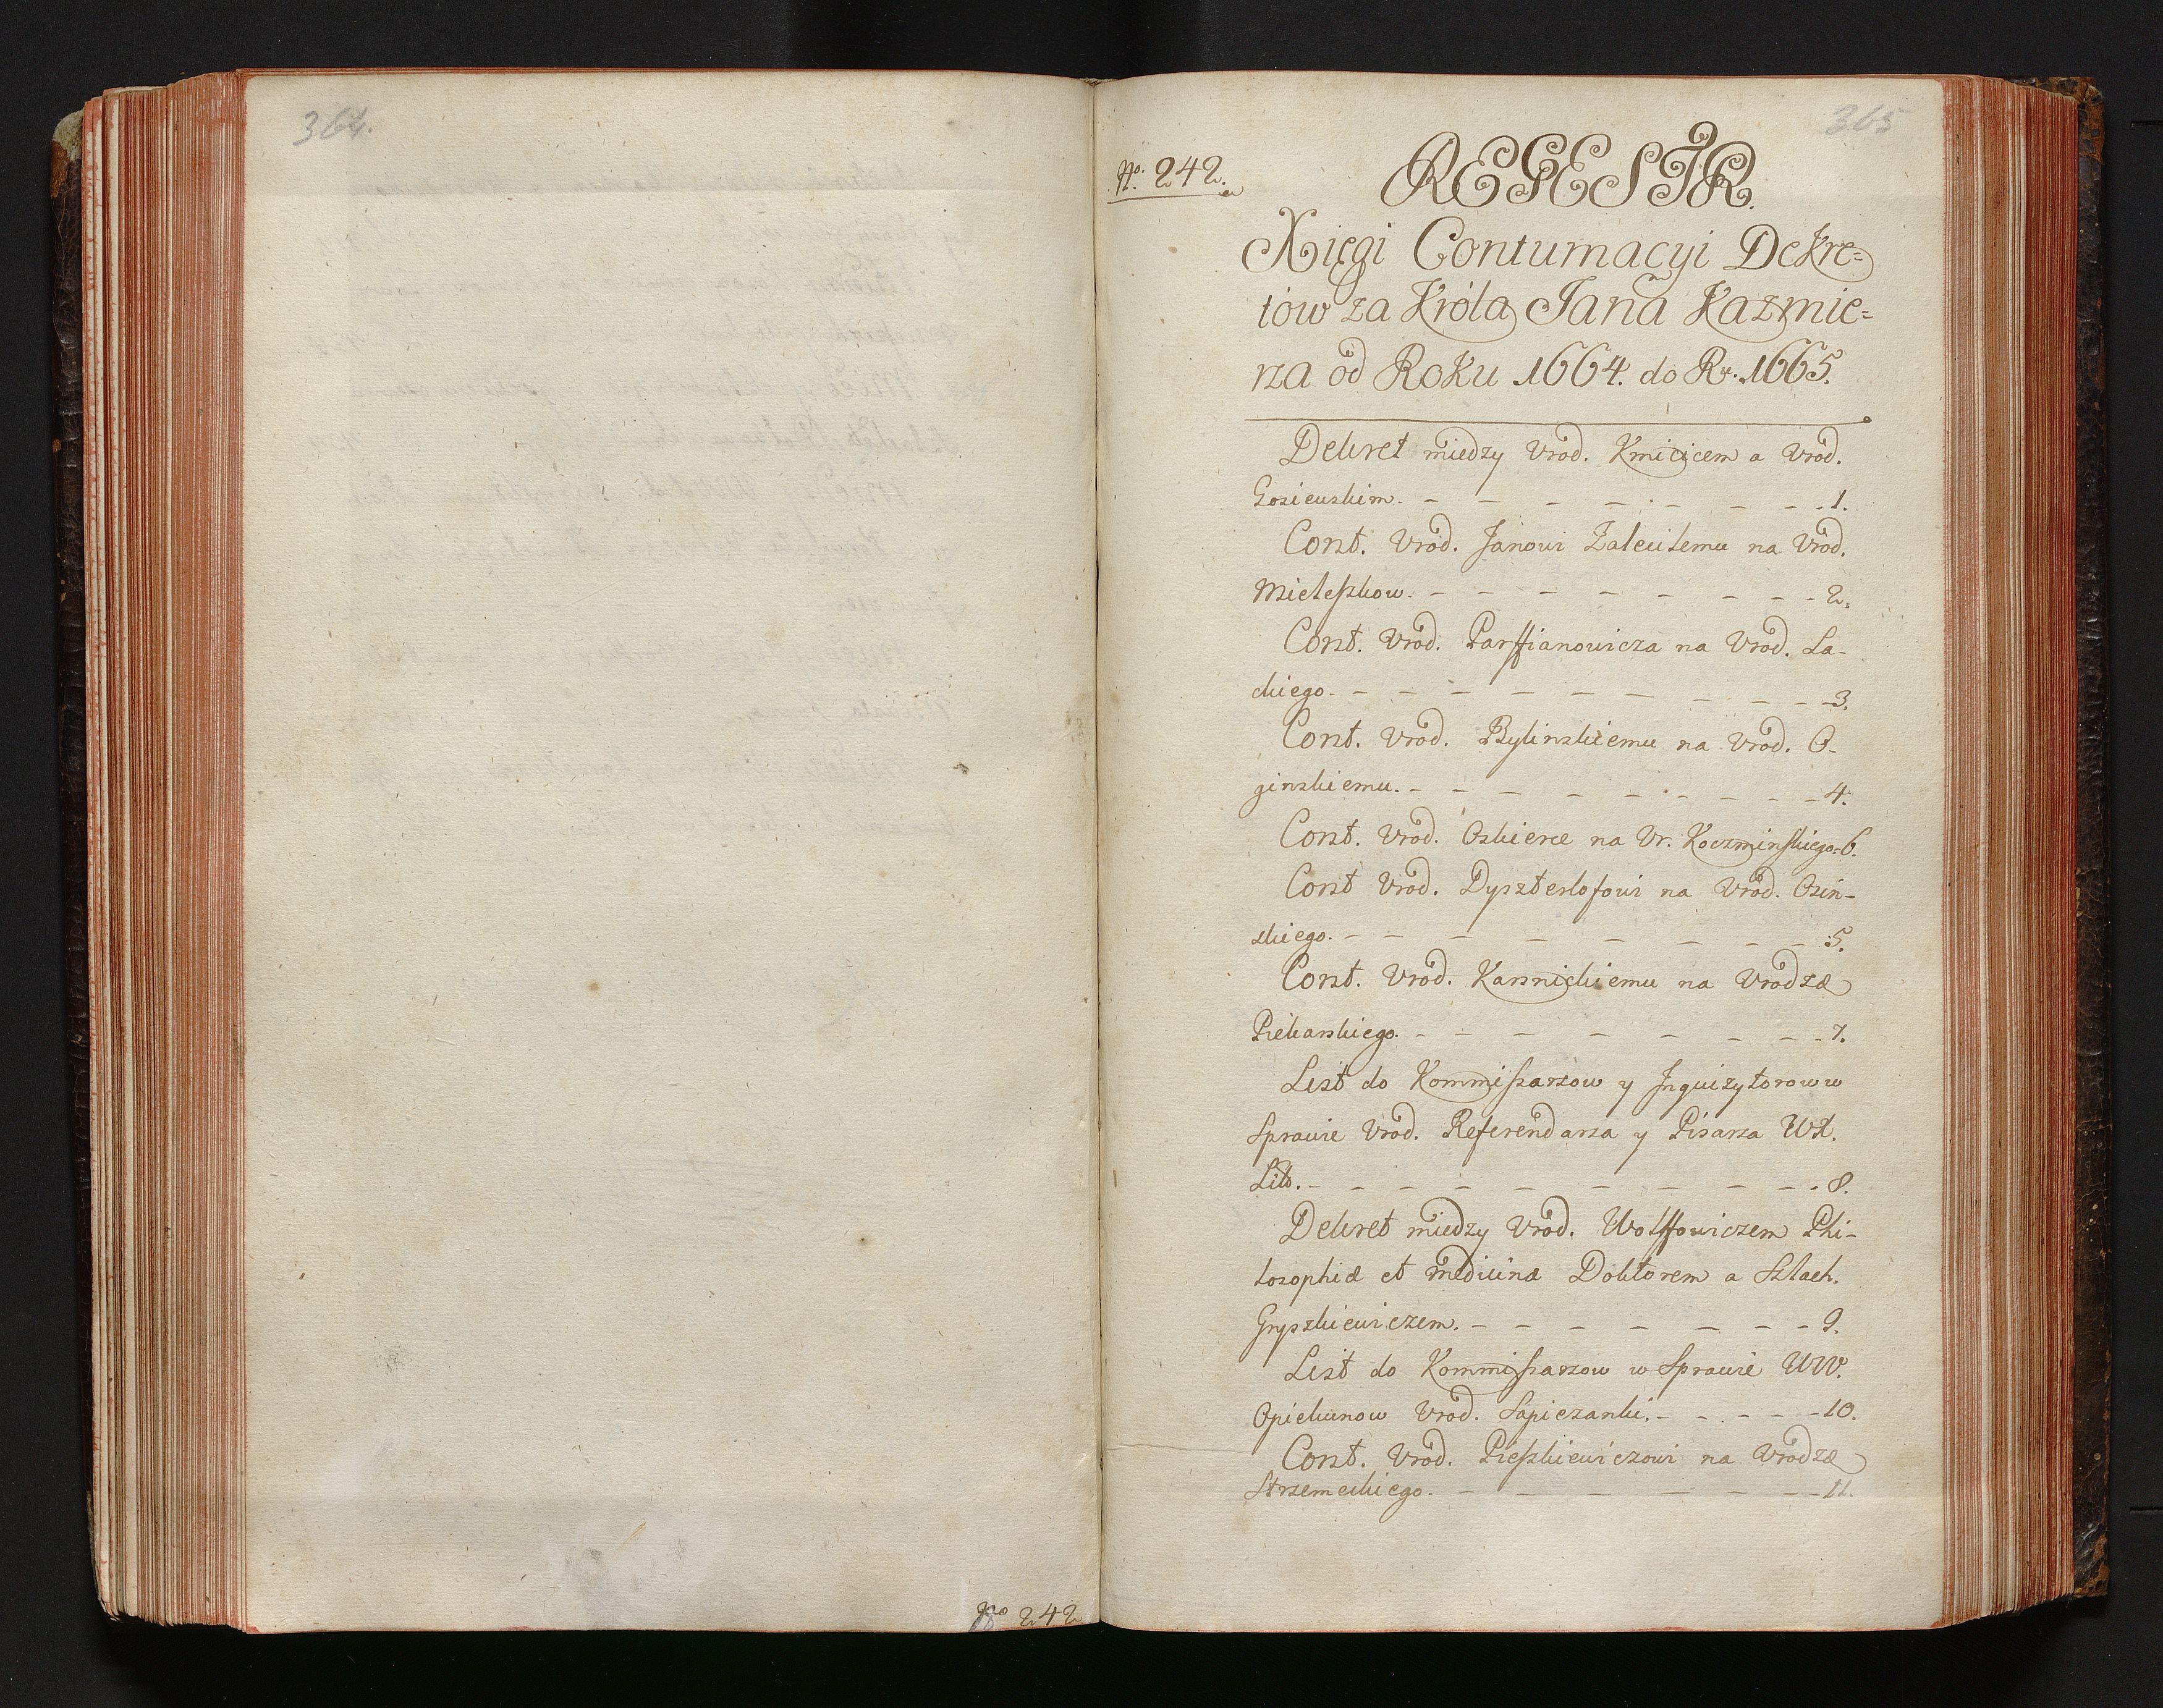 364.
No 242
365
No. 242.
REGESTR
Xięgi Contumacyi Dekre=
tow za Króla Jana Kazmie=
rza od Roku 1664. do Rr. 1665.
Dekret między Vrod. Kmicicem a Vrod.
Gosiewskim. - - - - - - - - 1.
Const. Vrod. Janowi Zaleskemu na Vrod.
Mieleszkow. - - - - - - - - 2.
Const. Vrod. Parffianowicza na Vrod. La-
ckiego. - - - - - - - - - 3.
Const. Vrod. Bylinskiemu na Vrod. O-
ginskiemu. - - - - - - - - 4.
Const. Vrod. Oskierce na Vr. Koczminskiego. 6.
Const Vrod. Dyszterlofowi na Vrod. Osin-
skiego. - - - - - - - - 5.
Const. Vrod. Karsnickiemu na Vrodzæ
Piekarskiego. - - - - - - - - 7.
List do Kommissarzow y Inquizytorow w
Sprawie Vrod. Referendarza y Pisarza WX.
Litt. - - - - - - - - - 8.
Dekret między Vrod. Wolffowiczem Phi-
losophiæ et medicinæ Doktorem a Szlach.
Gryszkiewiczem. - - - - - - - 9.
List do Kommissarzow w Sprawie UW.
Opiekunow Vrod. Sapiezanki. - - - - 10.
Const. Vrod. Pieszkiewiczowi na Vrodzæ
Strzemeckiego. - - - - - - - 11.